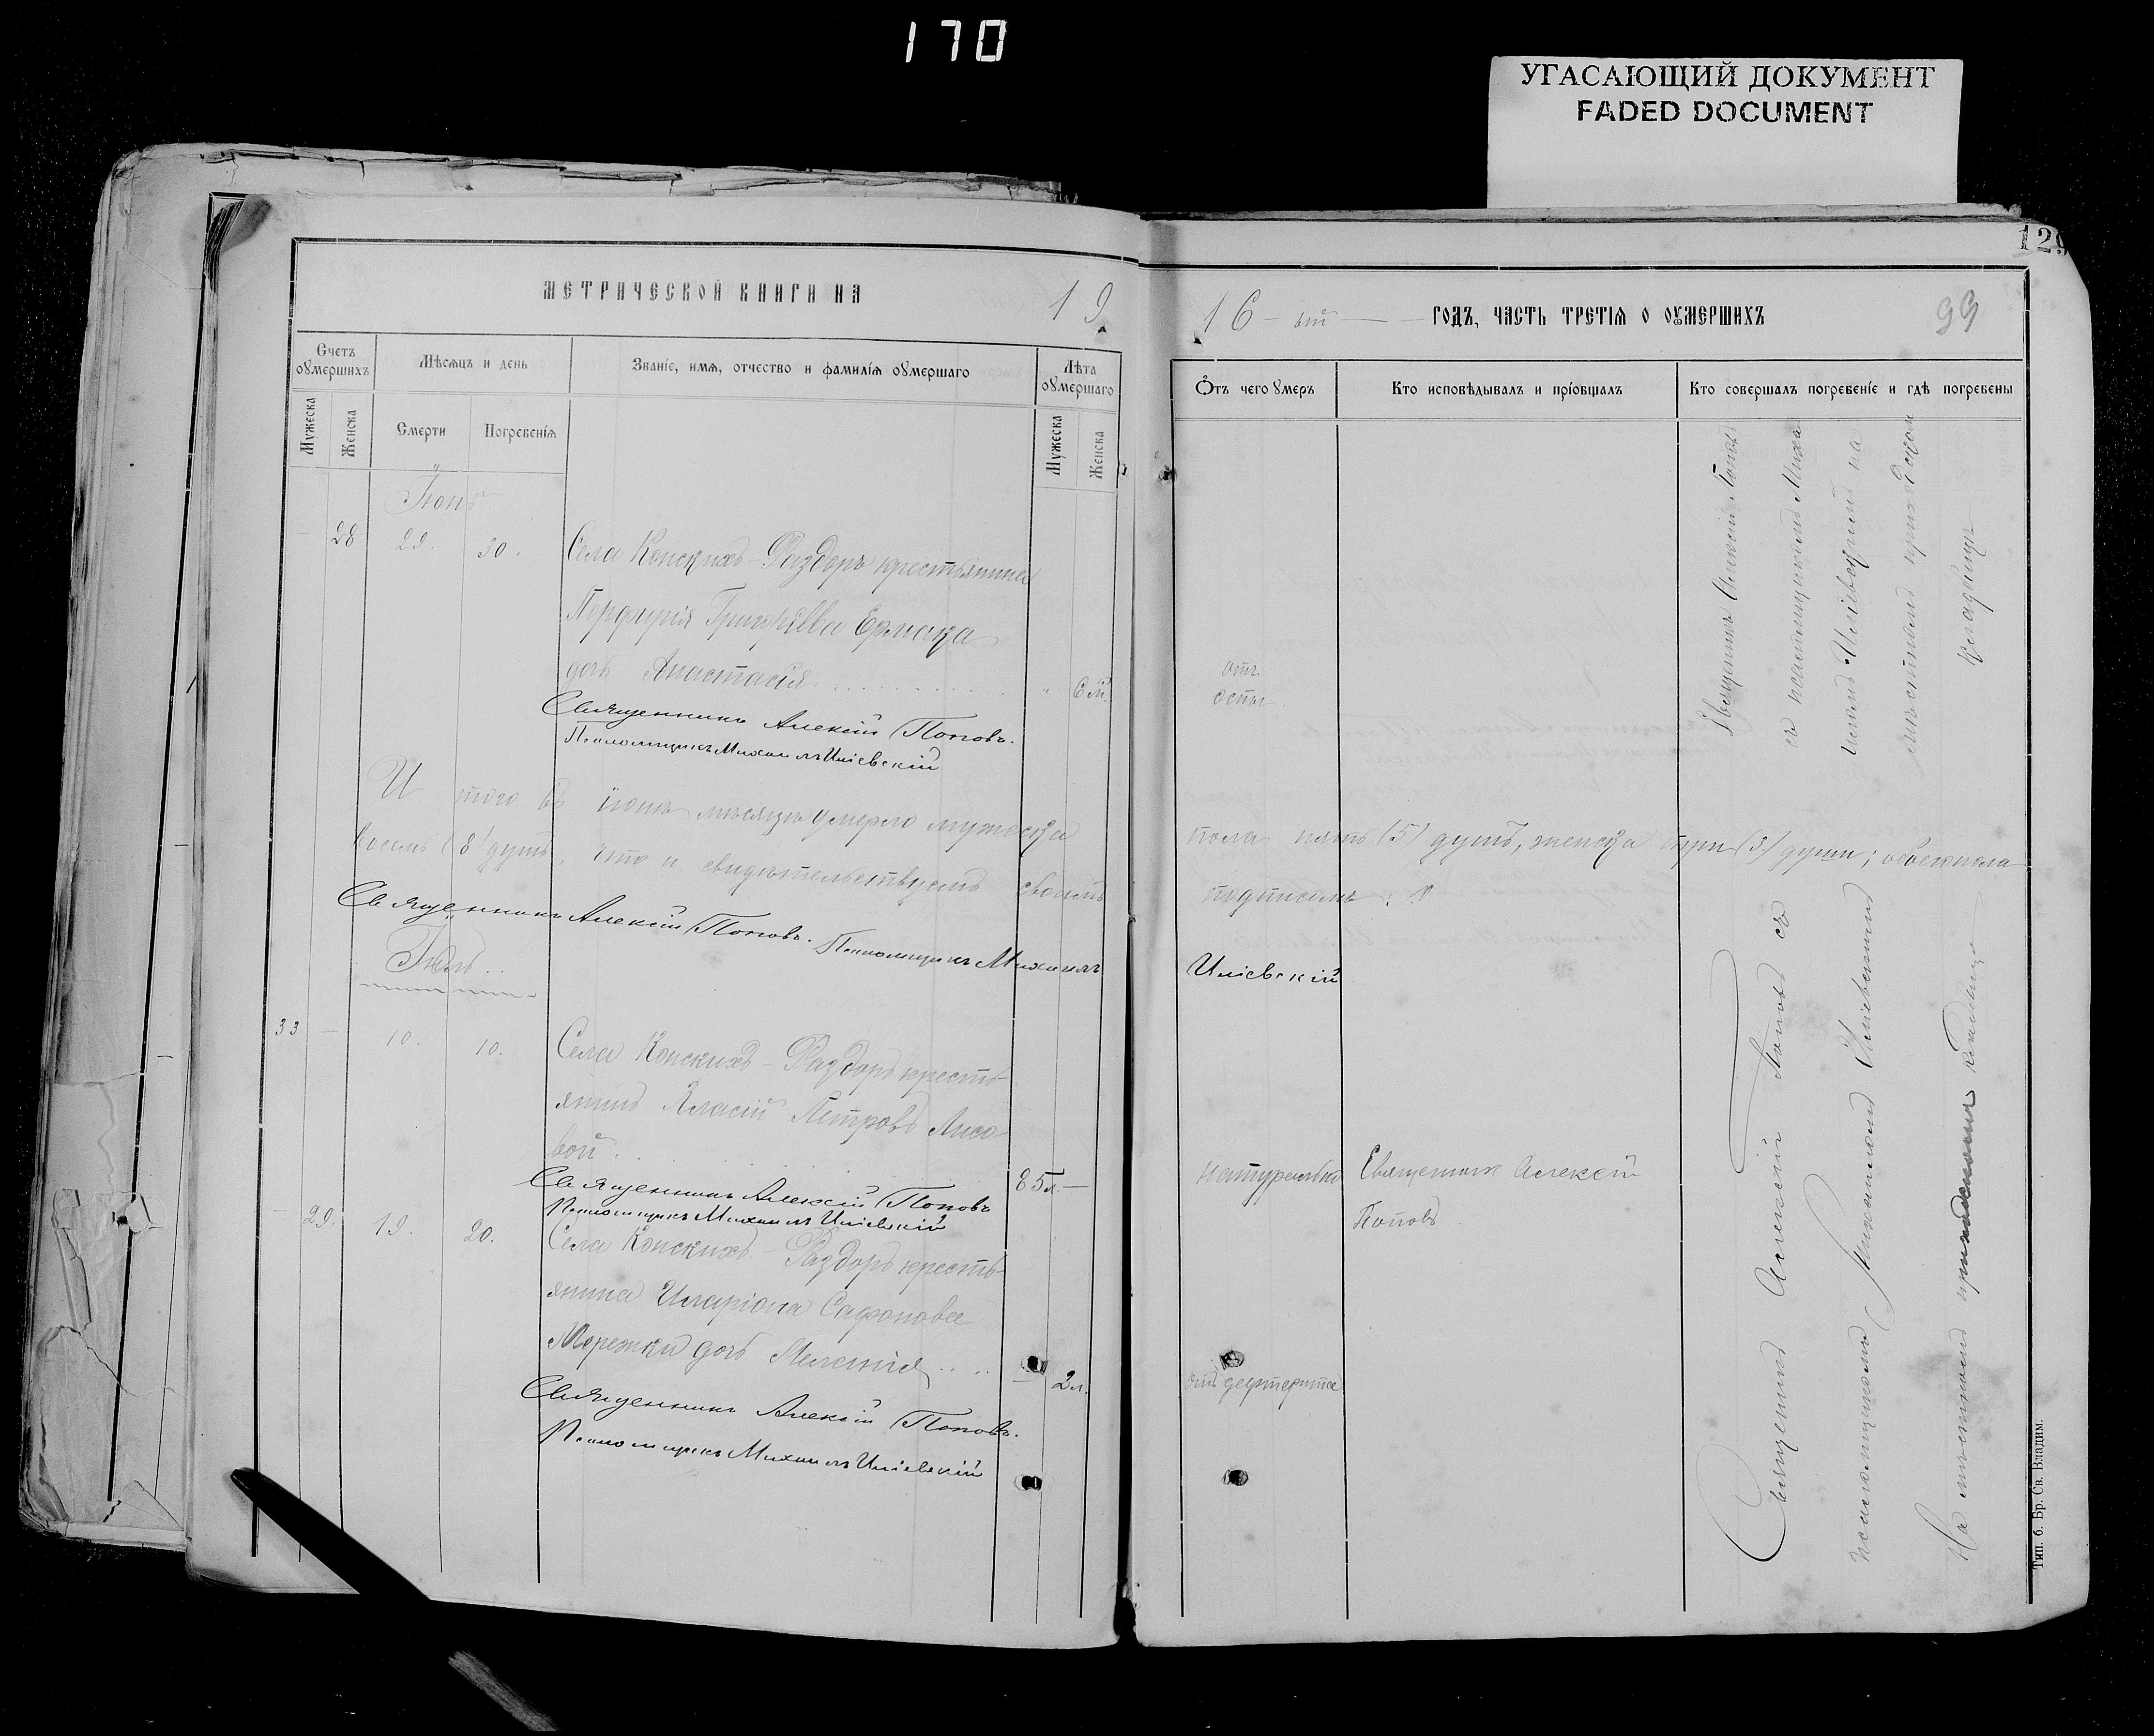 170
УГАСАЮЩИЙ ДОКУМЕНТ
FADED DOCUMENT
129
МЕТРИЧЕСКОЙ КНИГИ НА 19
16-ый ГОДЪ, ЧАСТЬ ТРЕТІѦ О ОУМЕРШИХЪ
99
Счетъ оумершихъ
Мѣсѧцъ и день
Званіе, имѧ, отчество и фамиліѧ оумершаго
Лѣта оумершаго
Ѿтъ чего умеръ
Кто исповѣдывалъ и пріобщалъ
Кто совершалъ погребеніе и гдѣ погребены
Мужеска
Женска
Смерти
Погребеніѧ
Мужеска
Женска
Іюнь
28
29.
30.
Села Конскихъ-Раздоръ крестьянина
Порфирія Григорьева Ермака
дочь Анастасія
6 м.
отъ
оспы
Священникъ Алексій Поповъ.
Псаломщикъ Михаилъ Иліевскій
Священникъ Алексій Поповъ
съ псаломщикомъ Михаи
иломъ Иліевскимъ на
мѣстномъ приходском
кладбищѣ
И того въ іюнѣ мѣсяцѣ умерло мужеска
пола пять (5) душъ, женска три (3) души; обоего пола
восемь (8) душъ, что и свидѣтельствуемъ своимъ
подписомъ:
Священникъ Алексій Поповъ. Псаломщикъ Михаилъ
Иліевскій
Іюль
33
10.
10.
Села Конскихъ-Раздоръ кресть-
янинъ Власій Петровъ Лисо-
вой
85 л.
натурально
Священник Алексей
Поповъ
Священникъ Алексій Поповъ
Псаломщикъ Михаилъ Иліевскій
29.
19.
20.
Села Конскихъ-Раздоръ кресть-
янина Иларіона Сафонова
Мережки дочь Меланія
2 л.
отъ дефтерита
Священникъ Алексій Поповъ.
Псаломщикъ Михаилъ Иліевскій
Священникъ Алексій Поповъ съ
псаломщикомъ Михаиломъ Иліевскимъ
На мѣстномъ приходскомъ кладбищѣ
Тип. б. Бр. Св. Владим.